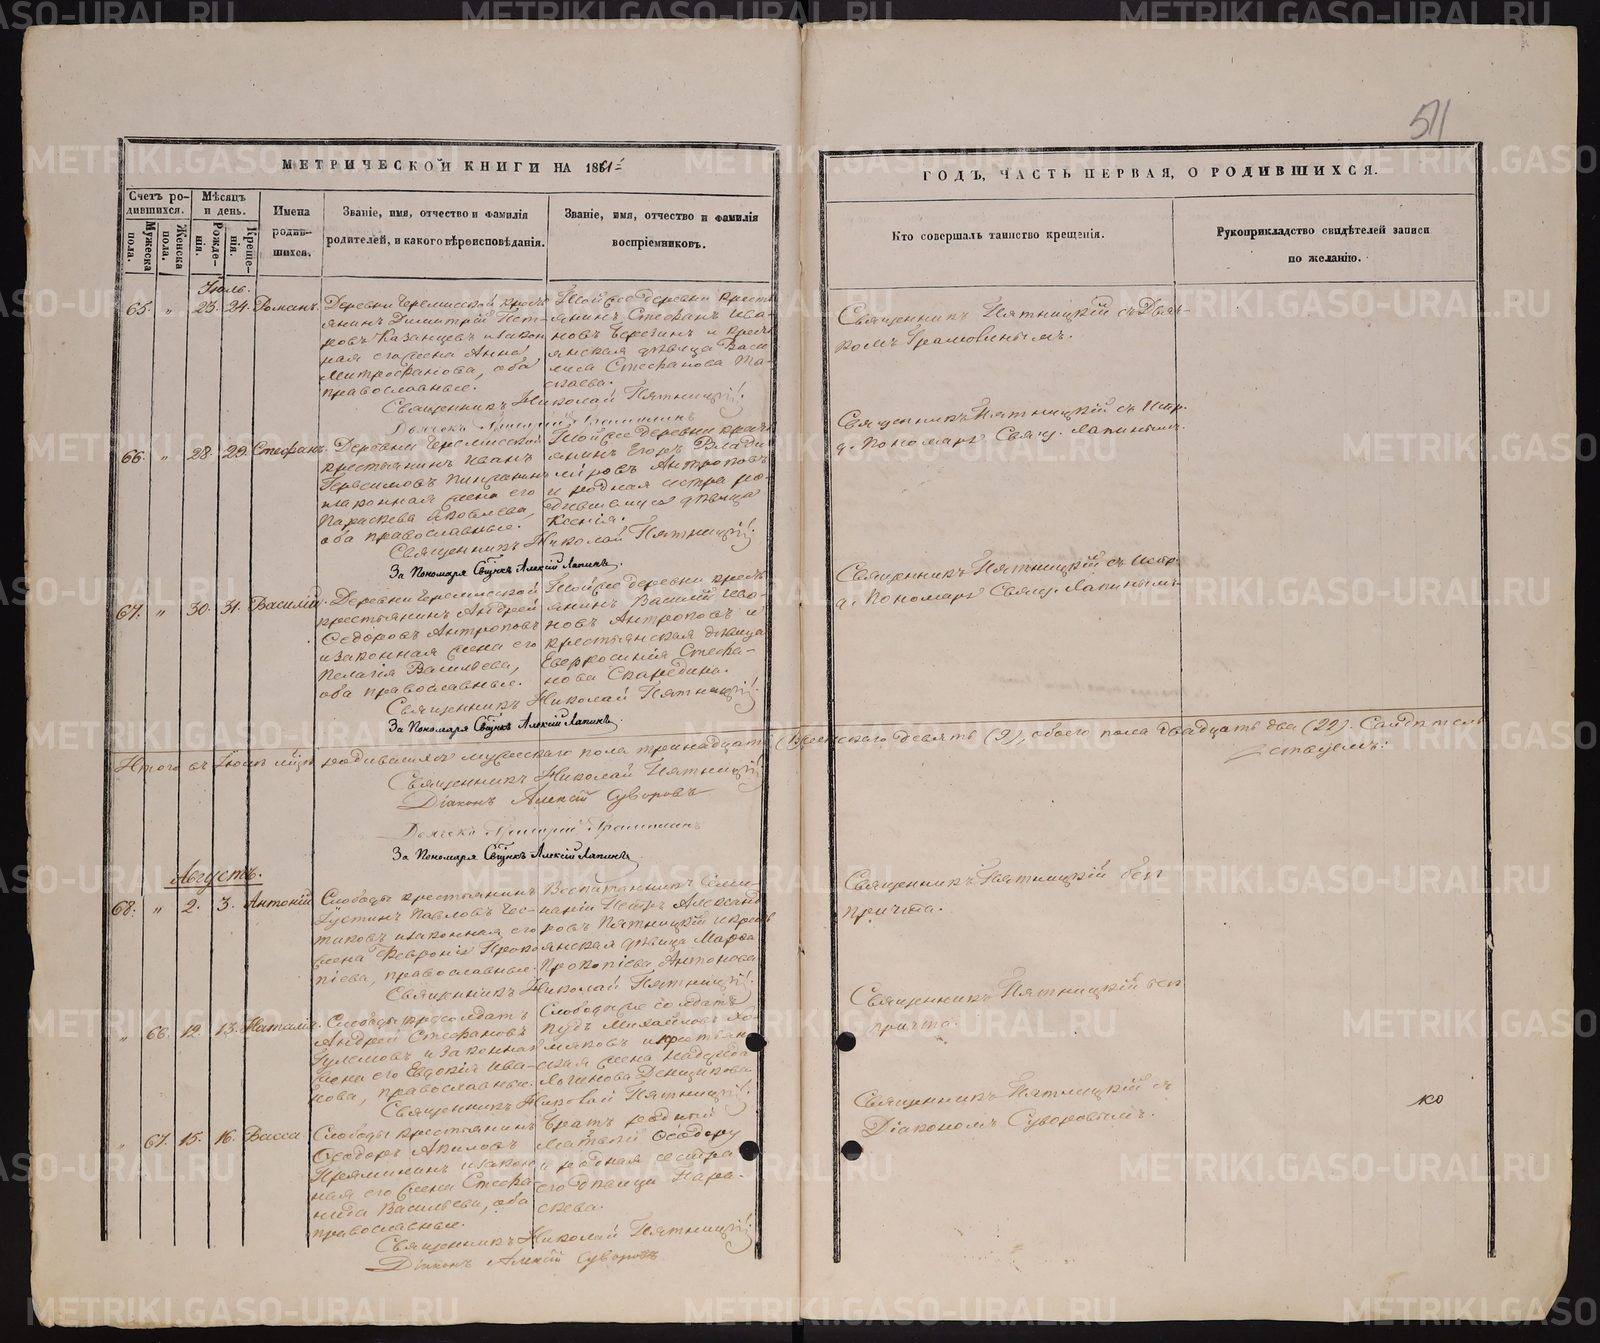 511
МЕТРИЧЕСКОЙ КНИГИ НА 1861
ГОДЪ, ЧАСТЬ ПЕРВАЯ, О РОДИВШИХСЯ.
Счетъ родившихся.
Мужеска пола.
Женска пола.
Мѣсяцъ и день.
Рожденія.
Крещенія.
Имена родившихся.
Званіе, имя, отчество и фамилія
родителей, и какого вѣроисповѣданія.
Званіе, имя, отчество и фамилія
воспріемниковъ.
Кто совершалъ таинство крещенія.
Рукоприкладство свидѣтелей записи
по желанію.
Іюль.
65. " 23. 24. Романъ.
Деревни Черемисской крестьянинъ
Димитрій Петровъ
Казанцевъ и законная
его жена Анна
Митрофанова, оба
православные.
Той же деревни крестьянинъ
Стефанъ Ивановъ
Березинъ и крестьянская
дѣвица Василиса
Стефанова
Священникъ Николай Пятницкій.
Священникъ Пятницкій съ Дьячкомъ
66. " 28. 29. Стефанъ.
Деревни Черемисской
крестьянинъ Иванъ
Герасимовъ
и законная жена его
Параскева Яковлева,
оба православные.
Той же деревни крестьянинъ
Егоръ Владиміровъ
Антроповъ
и родная сестра родившагося
дѣвица
Ксенія.
Священникъ Николай Пятницкій.
За Пономаря Свщнкъ Алексій Лапинъ.
Священникъ Пятницкій съ Испр.
д. Пономаря Свящ. Лапинымъ.
67. " 30. 31. Василій.
Деревни Черемисской
крестьянинъ Андрей
Ѳедоровъ Антроповъ
и законная жена его
Пелагія Васильева,
оба православные.
Той же деревни крестьянинъ
Василій Ивановъ
Антроповъ и
крестьянская дѣвица
Евфросинія Стефанова
Скаредина.
Священникъ Николай Пятницкій.
За Пономаря Свщнкъ Алексій Лапинъ.
Священникъ Пятницкій съ Испр.
д. Пономаря Свящ. Лапинымъ.
Итого въ Іюлѣ мцѣ родившихся мужескаго пола тринадцать женскаго девять (9), обоего пола двадцать два (22). Свидѣтельствуемъ:
Священникъ Николай Пятницкій
Діаконъ Алексій Суворовъ
За Пономаря Свщнкъ Алексій Лапинъ.
Августъ.
68. " 2. 3. Антоній
Слободы крестьянинъ
Іустинъ Павловъ
и законная его
жена Февронія Прокопіева,
православные.
Воспитанникъ Семинаріи
Петръ Александровъ
Пятницкій и крестьянская
дѣвица Марѳа
Прокопіева Антонова
Священникъ Николай Пятницкій.
Священникъ Пятницкій безъ
причта.
" 66. 12. 13. Наталія.
Слободы солдатъ
Андрей Стефановъ
и законная
жена его Евдокія Иванова,
православные.
Слободы же солдатъ
Михайловъ Хомяковъ
и крестьянская
жена Надежда
Логинова Денщикова
Священникъ Николай Пятницкій.
Священникъ Пятницкій безъ
причта.
" 67. 15. 16. Васса
Слободы крестьянинъ
Ѳеодоръ
Пряминъ и законная
его жена Стефанида
Васильева, оба
православные.
Братъ родный
Матвей Ѳеодору
и родная сестра
его дѣвица Параскева.
Священникъ Николай Пятницкій.
Діаконъ Алексій Суворовъ
Священникъ Пятницкій съ
Діакономъ Суворовымъ.
ко
METRIKI.GASO-URAL.RU